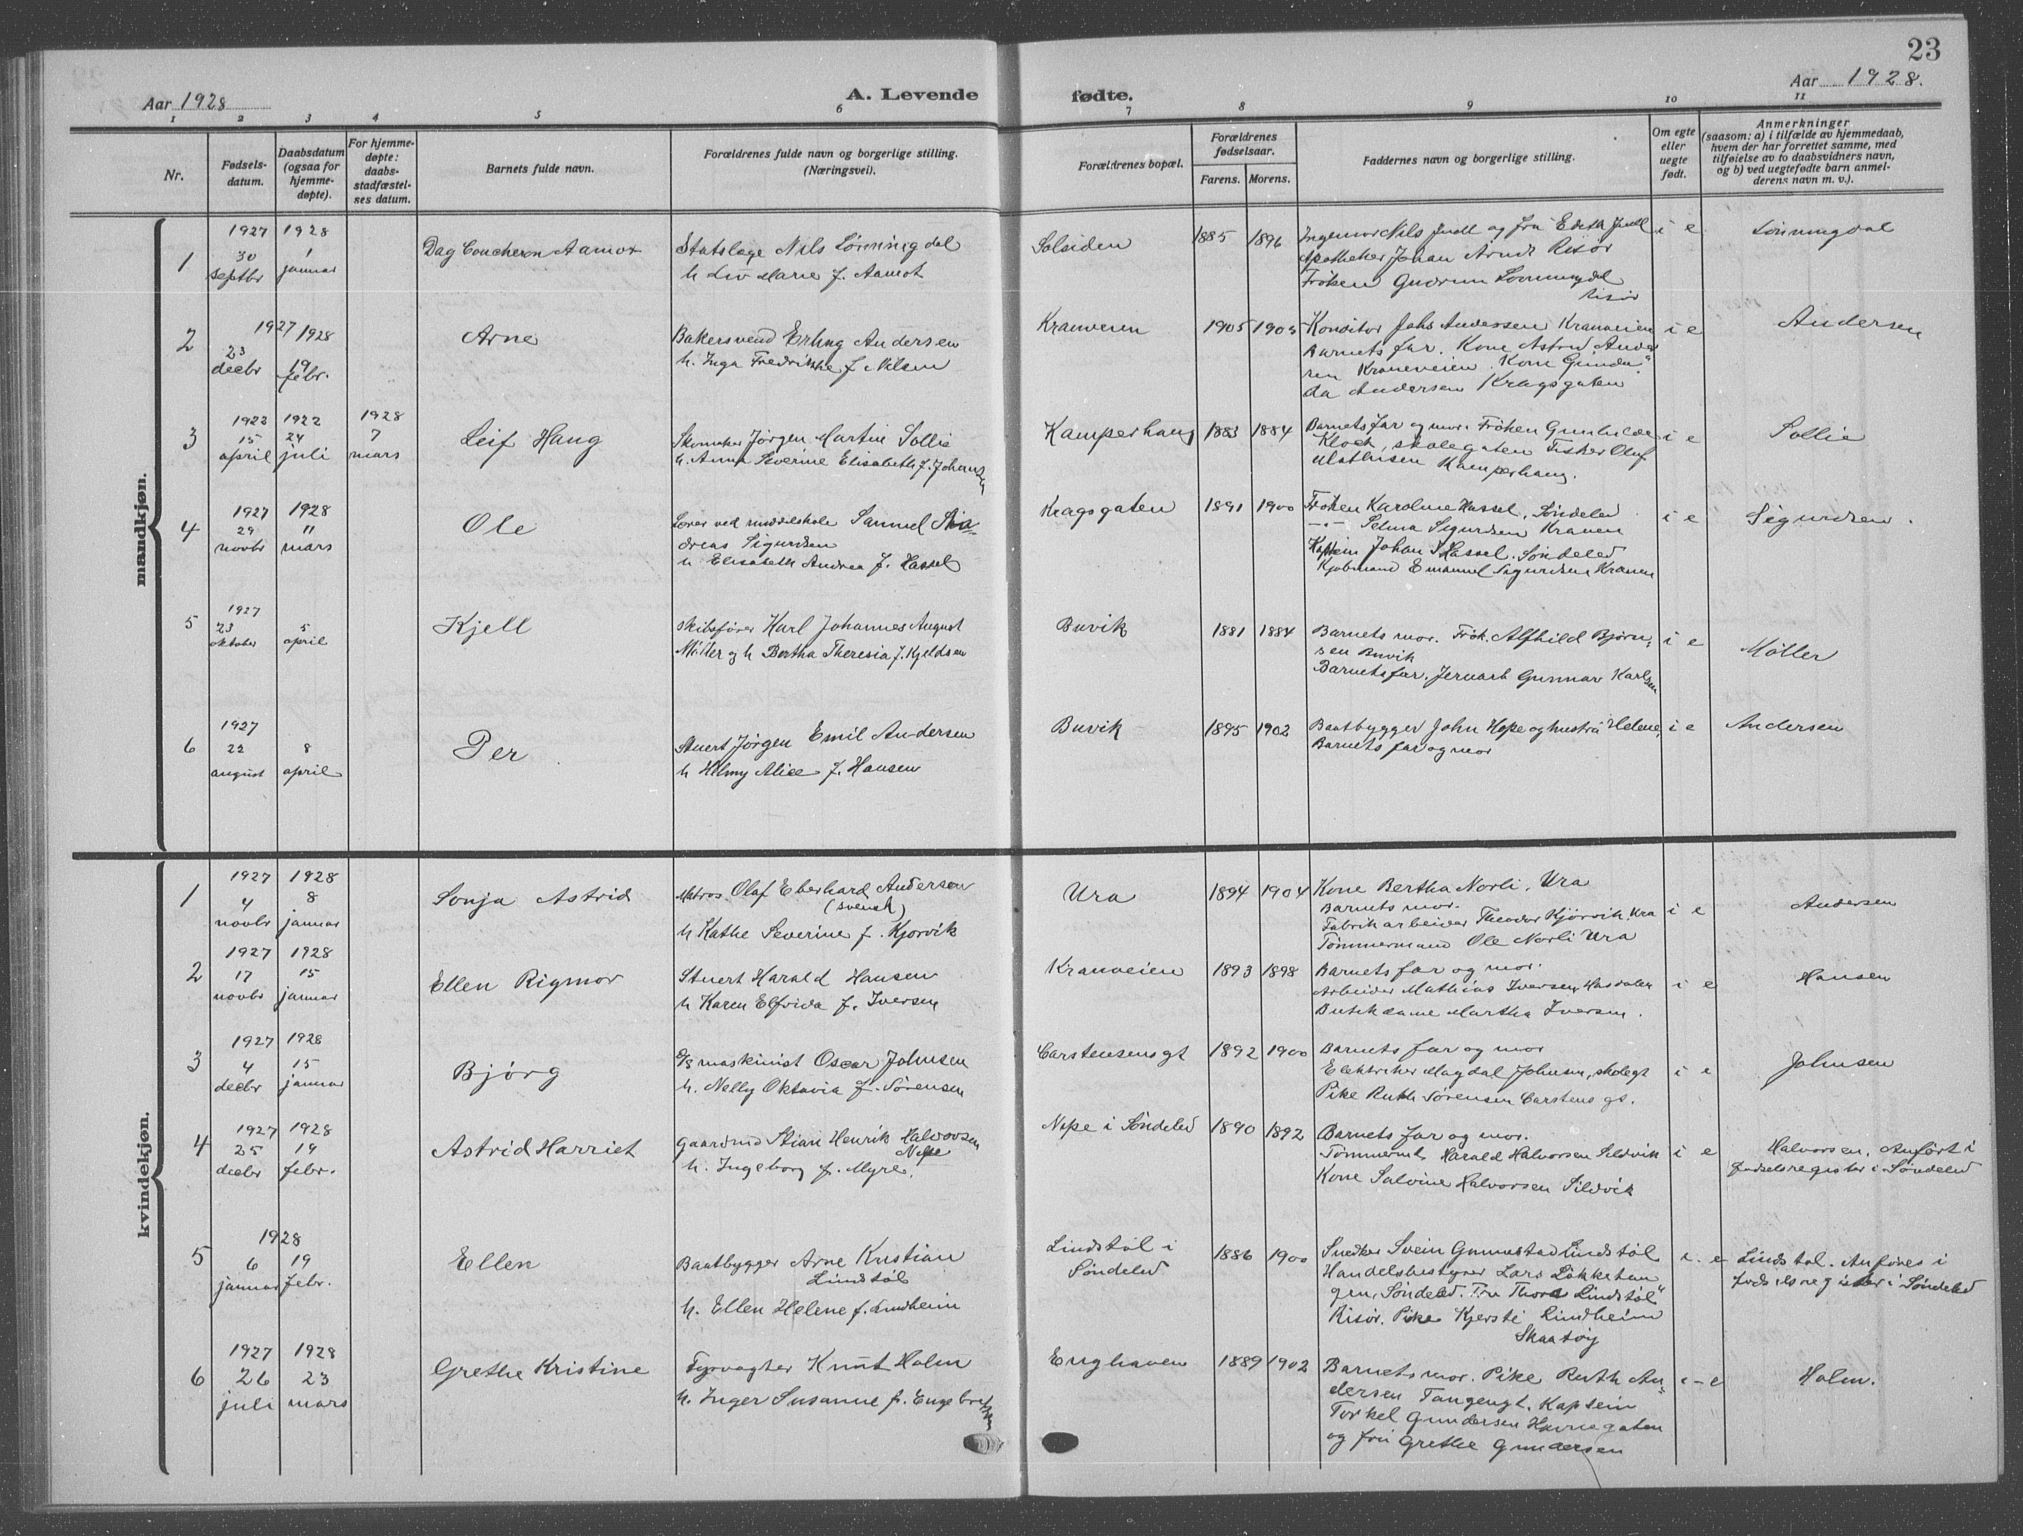 23
Aar 1928
A. Levende
fødte.
Aar 1928.
1 2 3 4 5 6 7 8 9 10 11
Nr.
Fødsels-
datum.
Daabsdatum
(ogsaa for
hjemme-
døpte).
For hjemme-
døpte:
daabs-
stadfæstel-
ses datum.
Barnets fulde navn.
Forældrenes fulde navn og borgerlige stilling.
(Næringsvei).
Forældrenes bopæl.
Forældrenes
fødselsaar.
Farens. Morens.
Faddernes navn og borgerlige stilling.
Om egte
eller
uegte
født.
Anmerkninger
(saasom: a) i tilfælde av hjemmedaab,
hvem der har forrettet samme, med
tilføielse av to daabsvidners navn,
og b) ved uegtefødte barn anmel-
derens navn m. v.).
mandkjøn.
1
1927
30
septbr
1928
1
januar
Dag Coucheron Aamot
Statslæge Nils Lönningdal
h. Liv Marie f. Aamot
Solsiden
1885 1896
Ingeniør Nils Juell og fru Edith Juell
Apotheker Johan Arndt Risör
Fröken Gudrun Lönningdal
Risör
i e
Lönningdal
2
1927
23
decbr
1928
19
febr.
Arne
Bakersvend Erling Andersen
h. Inga Fredrikke f. Nilsen
Kranveien
1905 1905
Konditor Johs Anderssen Kranveien
Barnets far. Kone Astrid Ander
sen Kraneveien. Kone Gunda
da Andersen Kragsgaten
i e
Andersen
3
1922
15
april
1922
24
juli
1928
7
mars
Leif Haug
Skomaker Jørgen Martin Sollie
h. Anna Severine Elisabeth f. Johansen
Kamperhaug
1883 1884
Barnets far og mor. Fröken Gunhilde
Kloch, skolegaten Fisker Oluf
Mathisen Kamperhaug.
i e
Sollie
4
1927
29
novbr
1928
11
mars
Ole
Lærer ved middelskole Samuel An
dreas Sigurdsen
h Elisabeth Andrea f. Hassel
Kragsgaten
1891 1900
Fröken Karoline Hassel, Söndeled
-"- Selma Sigurdsen Kranen
Kaptein Johan Hassel. Söndeled
Kjøbmand Emanuel Sigurdsen Kranen
i e
Sigurdsen.
5
1927
23
oktober
5
april
Kjell
skibsfører Karl Johannes August
Möller og h Bertha Theresia f. Kjeldsen
Buvik
1881 1884
Barnets mor. Frøk. Alfhild Bjørn-
sen Buvik
Barnets far. Jernarb Gunnar Karlsen
i e
Møller
6
1927
22
august
8
april
Per
Stuert Jörgen Emil Andersen
h Helmy Alice f. Hansen
Buvik
1895 1902
Baatbygger John Hope og hustru Helene,
Barnets far og mor
i e
Andersen
kvindekjøn.
1
1927
4
novbr
1928
8
januar
Sonja Astrid
Matros Olaf Eberhard Andersen
(svensk)
h Kathe Severine f. Kjorvik
Ura
1894 1904
Kone Bertha Norli, Ura
Barnets mor.
Fabrikarbeider Theodor Kjörvik, Ura
Tømmermand Ole Norli Ura
i e
Andersen
2
1927
17
novbr
1928
15
januar
Ellen Rigmor
Stuert Harald Hansen
h Karen Elfrida f. Iversen
Kranveien
1893 1898
Barnets far og mor.
Arbeider Mathias Iversen Hasdalen
Butikdame Martha Iversen.
i e
Hansen
3
1927
4
decbr
1928
15
januar
Bjørg
D/S maskinist Oscar Johnsen
h. Nelly Oktavia f. Sörensen
Carstensensgt
1892 1900
Barnets far og mor
Elektriker Magdal Johnsen, skolegt
Pike Ruth Sörensen Carstens gt.
i e
Johnsen
4
1927
25
decbr
1928
19
febr.
Astrid Harriet
Gaardmd Stian Henrik Halvorsen
Nipe
h. Ingeborg f. Myre.
Nipe i Söndeled
1890 1892
Barnets far og mor.
Tømmermd Harald Halvorsen Sildvik
Kone Salvine Halvorsen Sildvik
i e
Halvorsen. Anført i
fødselsregister i Söndeled
5
1928
6
januar
19
febr.
Ellen
Baatbygger Arne Kristian
Lindstøl
h. Ellen Helene f. Lindheim
Lindstøl i
Söndeled
1886 1900
Snedker Svein Gunnestad Lindstöl
Handelsbestyrer Lars Lökketan
gen, Söndeled. Fru Thora Lindstöl
Risör. Pike Kjersti Lindheim
Skaatøy
i - e
Lindstøl. Anføres i
fødselsregister i Söndeled
6
1927
26
juli
1928
23
mars
Grethe Kristine
Fyrvogter Knut Holm
h. Inger Susanne f. Engebretsen
Enghaven
1889 1902
Barnets mor. Pike Ruth An-
dersen Tangengt. Kaptein
Torkel Gundersen Havnegaten
og fru Grethe Gundersen
i - e
Holm.